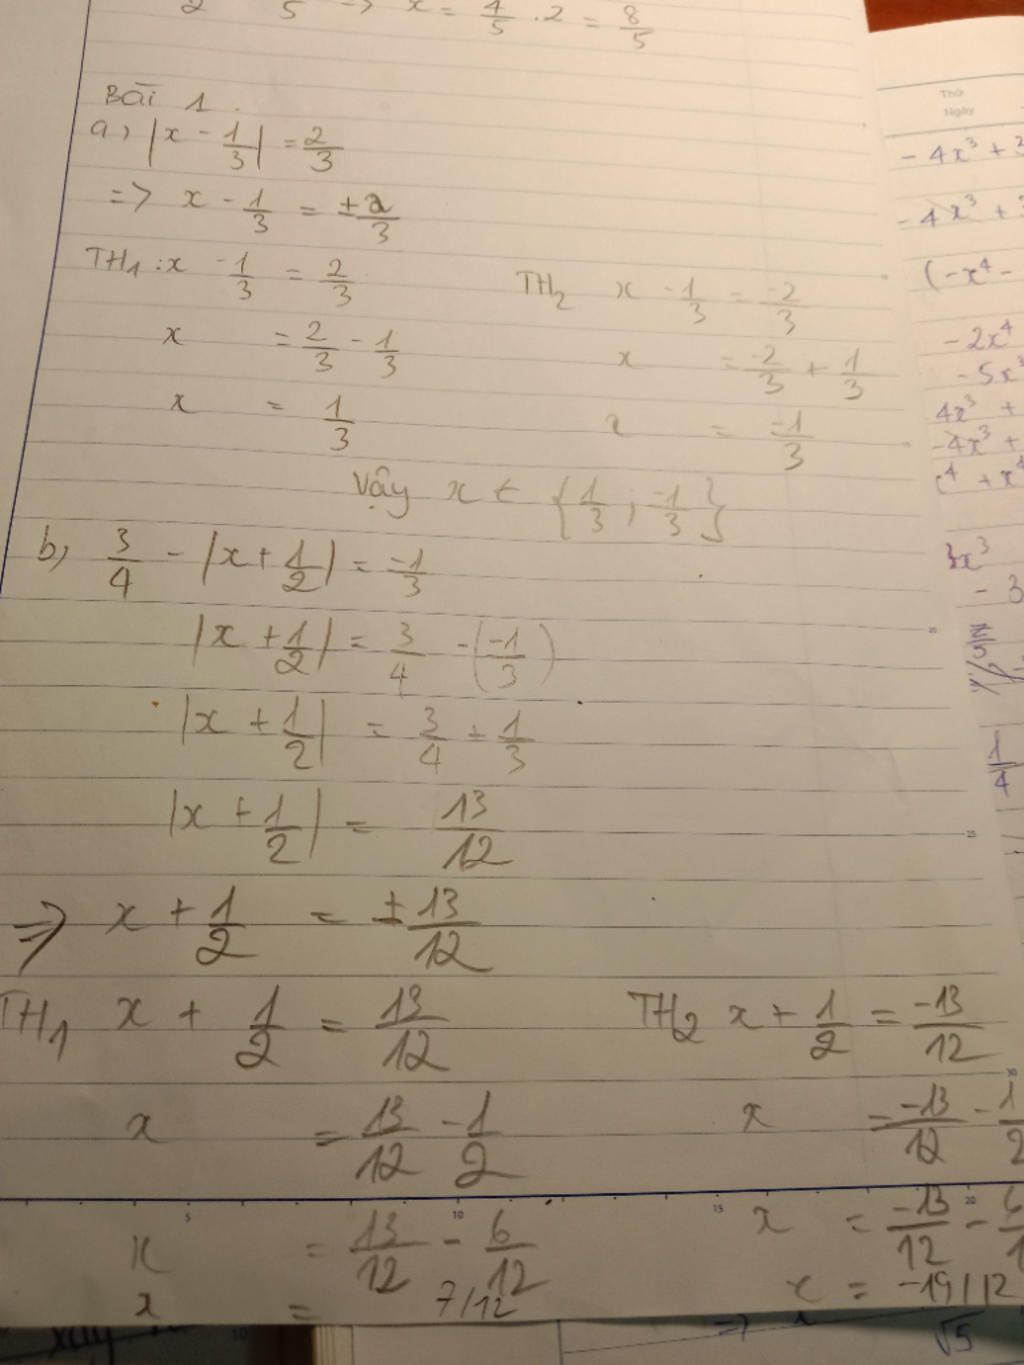 x = 4/5 . 2 = 8/5
Bài 1.
a, |x - 1/3| = 2/3
=> x - 1/3 = ±2/3
TH1 : x - 1/3 = 2/3
x = 2/3 - 1/3
x = 1/3
TH2 x - 1/3 = -2/3
x = -2/3 + 1/3
x = -1/3
Vậy x ∈ {1/3 ; -1/3}
b, 3/4 - |x + 1/2| = -1/3
|x + 1/2| = 3/4 - (-1/3)
|x + 1/2| = 3/4 + 1/3
|x + 1/2| = 13/12
=> x + 1/2 = ±13/12
TH1 x + 1/2 = 13/12
x = 13/12 - 1/2
x = 13/12 - 6/12
x = 7/12
TH2 x + 1/2 = -13/12
x = -13/12 - 1/2
x = -13/12 - 6/1
x = -19/12
Thứ
Ngày
- 4x³ +
- 4x³ +
(-x⁴ -
- 2x⁴
- 5x³
4x³ +
-4x³ +
+ x⁴
3x³
- 3
1/4
√5